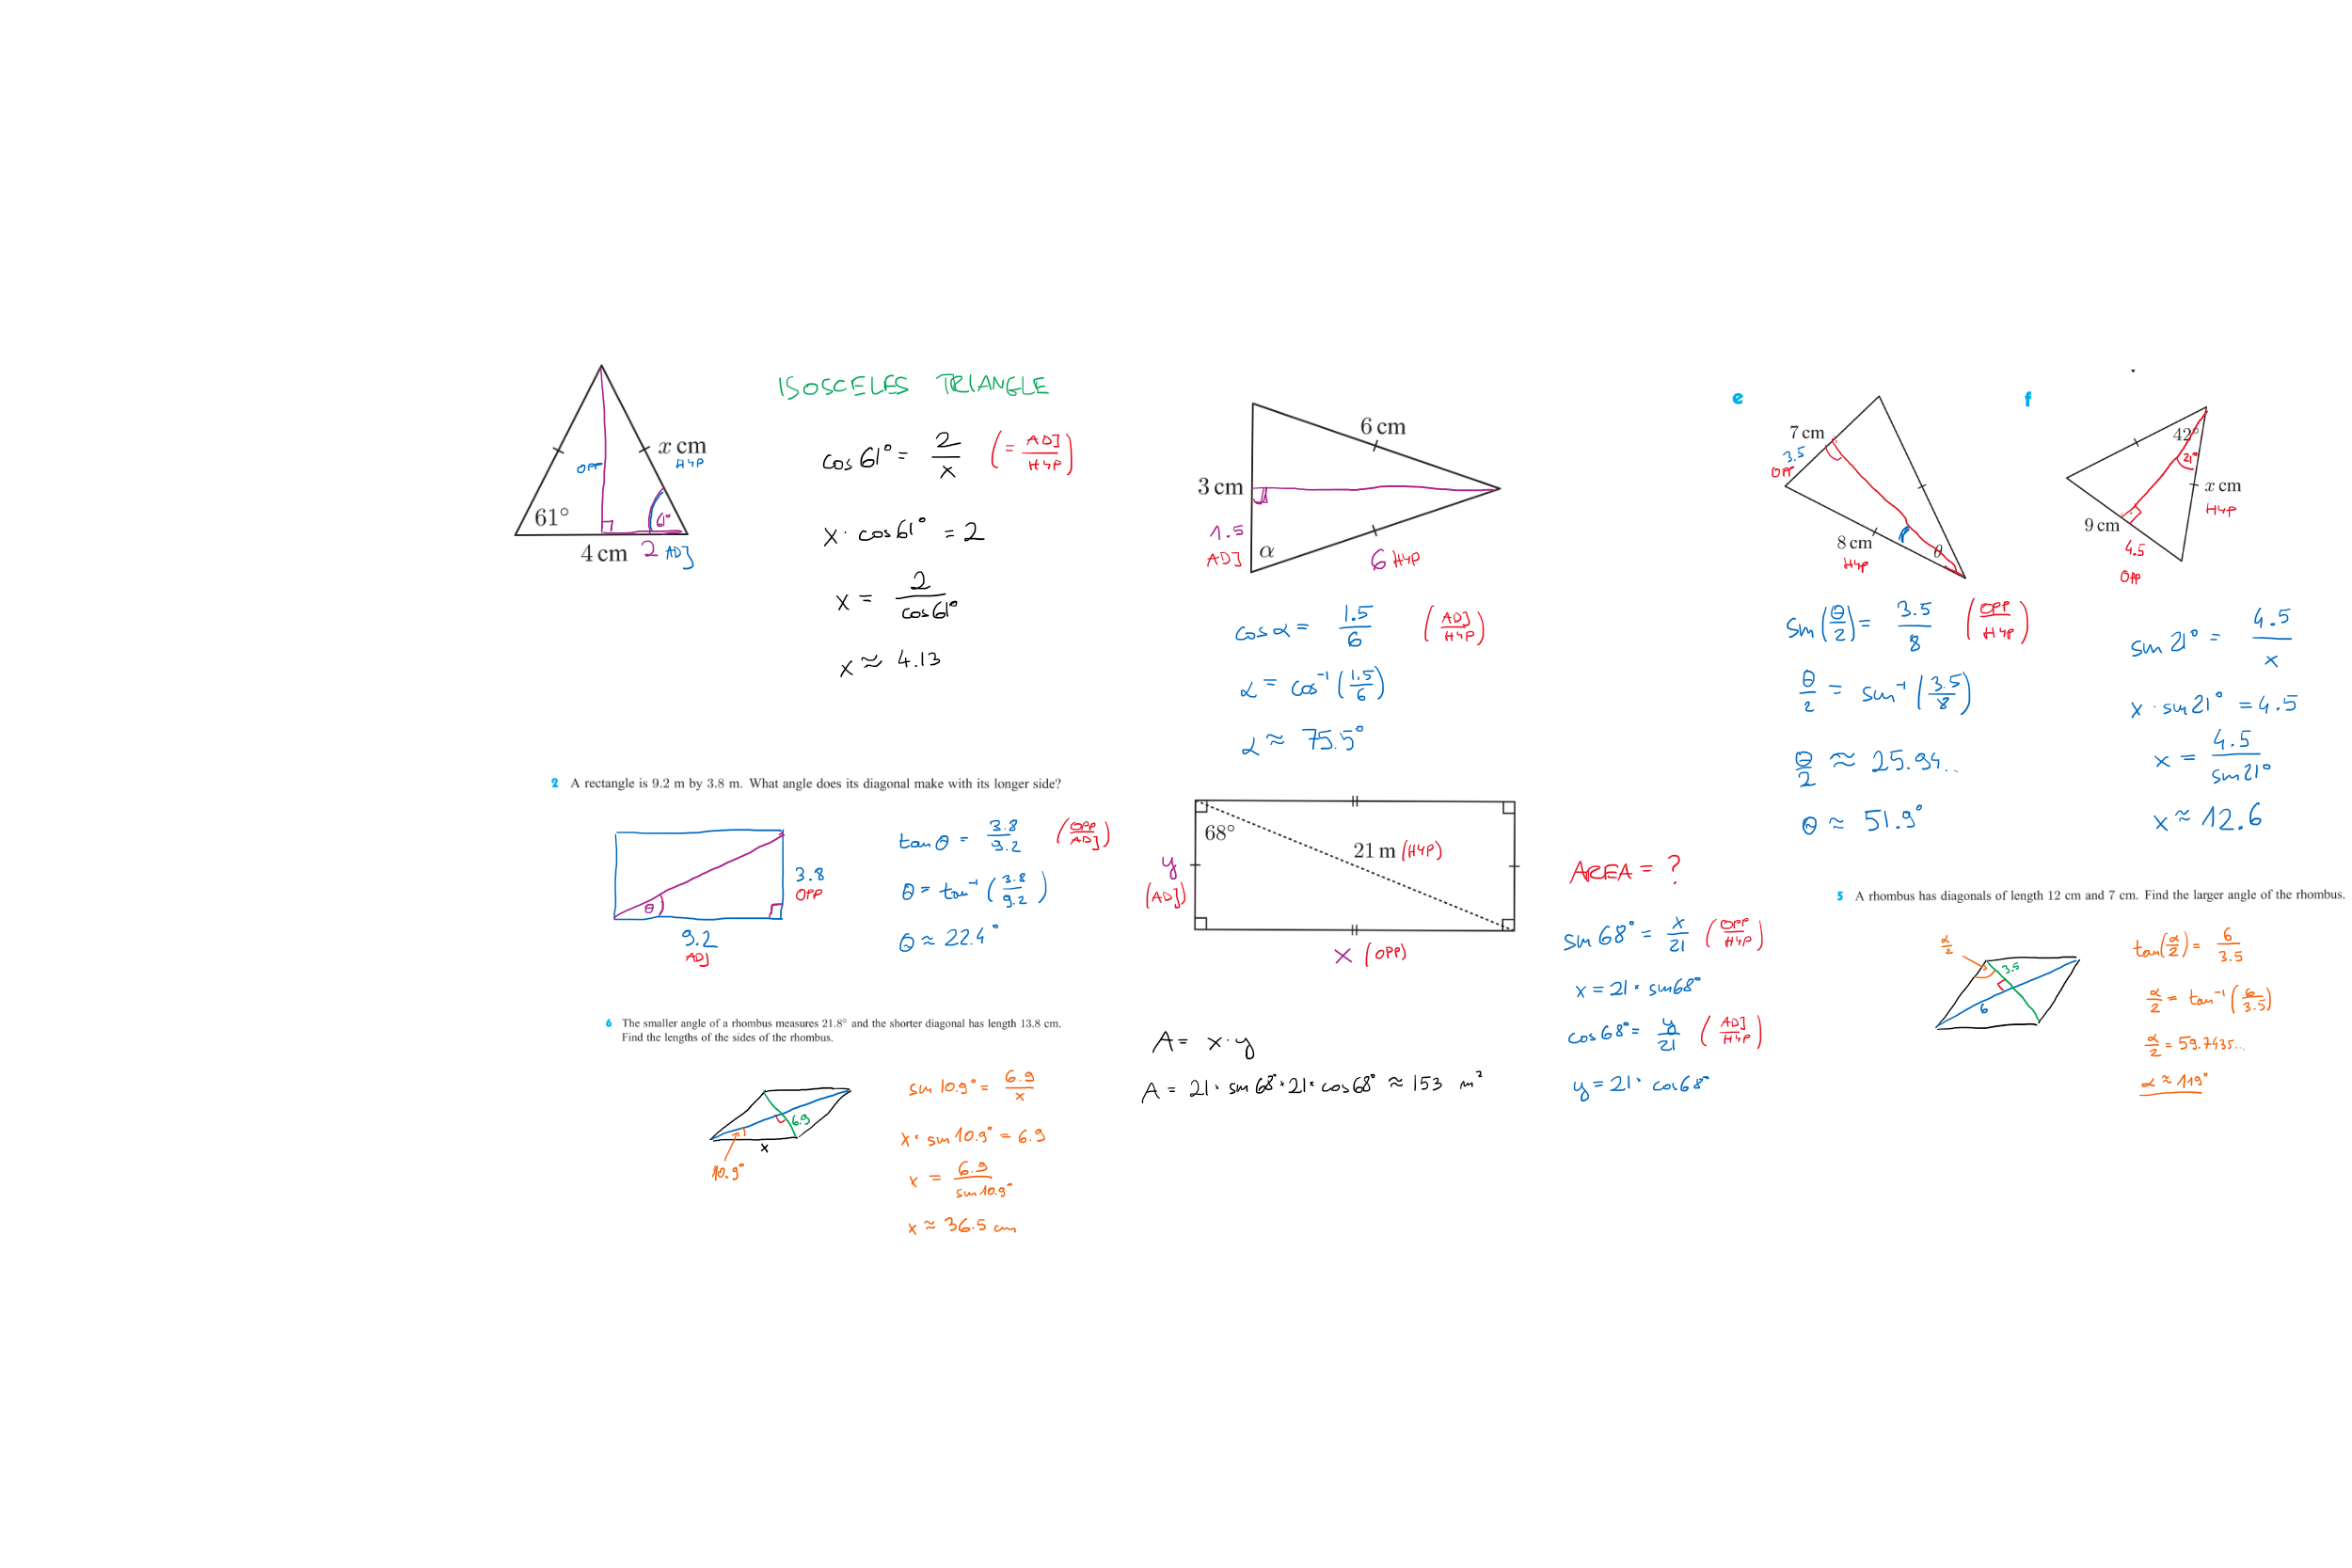 ISOSCELES TRIANGLE
x cm
HYP
OPP
61°
61°
4 cm 2 ADJ
cos 61° = 2/x (= ADJ/HYP)
x · cos 61° = 2
x = 2/cos 61°
x ≈ 4.13
6 cm
3 cm
1.5
ADJ
α
6 HYP
cos α = 1.5/6 (ADJ/HYP)
α = cos⁻¹(1.5/6)
α ≈ 75.5°
e
7 cm
3.5
OPP
8 cm
HYP
θ
sin(θ/2) = 3.5/8 (OPP/HYP)
θ/2 = sin⁻¹(3.5/8)
θ/2 ≈ 25.94..
θ ≈ 51.9°
f
42°
21°
x cm
HYP
9 cm
4.5
OPP
sin 21° = 4.5/x
x · sin 21° = 4.5
x = 4.5/sin 21°
x ≈ 12.6
2 A rectangle is 9.2 m by 3.8 m. What angle does its diagonal make with its longer side?
θ
3.8
OPP
9.2
ADJ
tan θ = 3.8/9.2 (OPP/ADJ)
θ = tan⁻¹(3.8/9.2)
θ ≈ 22.4°
68°
21 m (HYP)
y
(ADJ)
x (OPP)
AREA = ?
sin 68° = x/21 (OPP/HYP)
x = 21 · sin 68°
cos 68° = y/21 (ADJ/HYP)
y = 21 · cos 68°
A = x · y
A = 21 · sin 68° · 21 · cos 68° ≈ 153 m²
5 A rhombus has diagonals of length 12 cm and 7 cm. Find the larger angle of the rhombus.
α/2
3.5
6
tan(α/2) = 6/3.5
α/2 = tan⁻¹(6/3.5)
α/2 = 59.7435...
α ≈ 119°
6 The smaller angle of a rhombus measures 21.8° and the shorter diagonal has length 13.8 cm.
Find the lengths of the sides of the rhombus.
6.9
x
10.9°
sin 10.9° = 6.9/x
x · sin 10.9° = 6.9
x = 6.9/sin 10.9°
x ≈ 36.5 cm